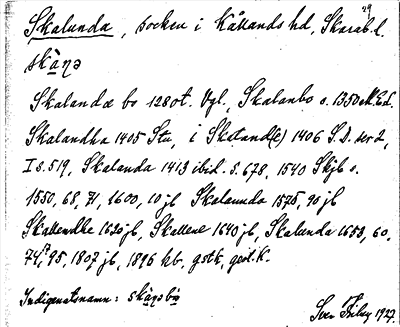 Skalunda, socken i Kållands hd, Skarab. l.
skànə
Skalandæ bo 1280t. Vgl., Skalanbo o. 1350 M.E.d.
Skalandha 1405 Stu, i Skaland(e) 1406 S.D. ser 2,
I s. 519, Skalanda 1413 ibid. s. 678, 1540 Skjb s.
1550, 68, 71, 1600, 10 jb Skalunda 1575, 90 jb
Skallendhe 1620 jb, Skallene 1640 jb, Skalunda 1653, 60,
74, 95, 1807 jb, 1896 kb. gstk, geol. k.
Indigenatsnamn: skànsbo
Sven 1927.